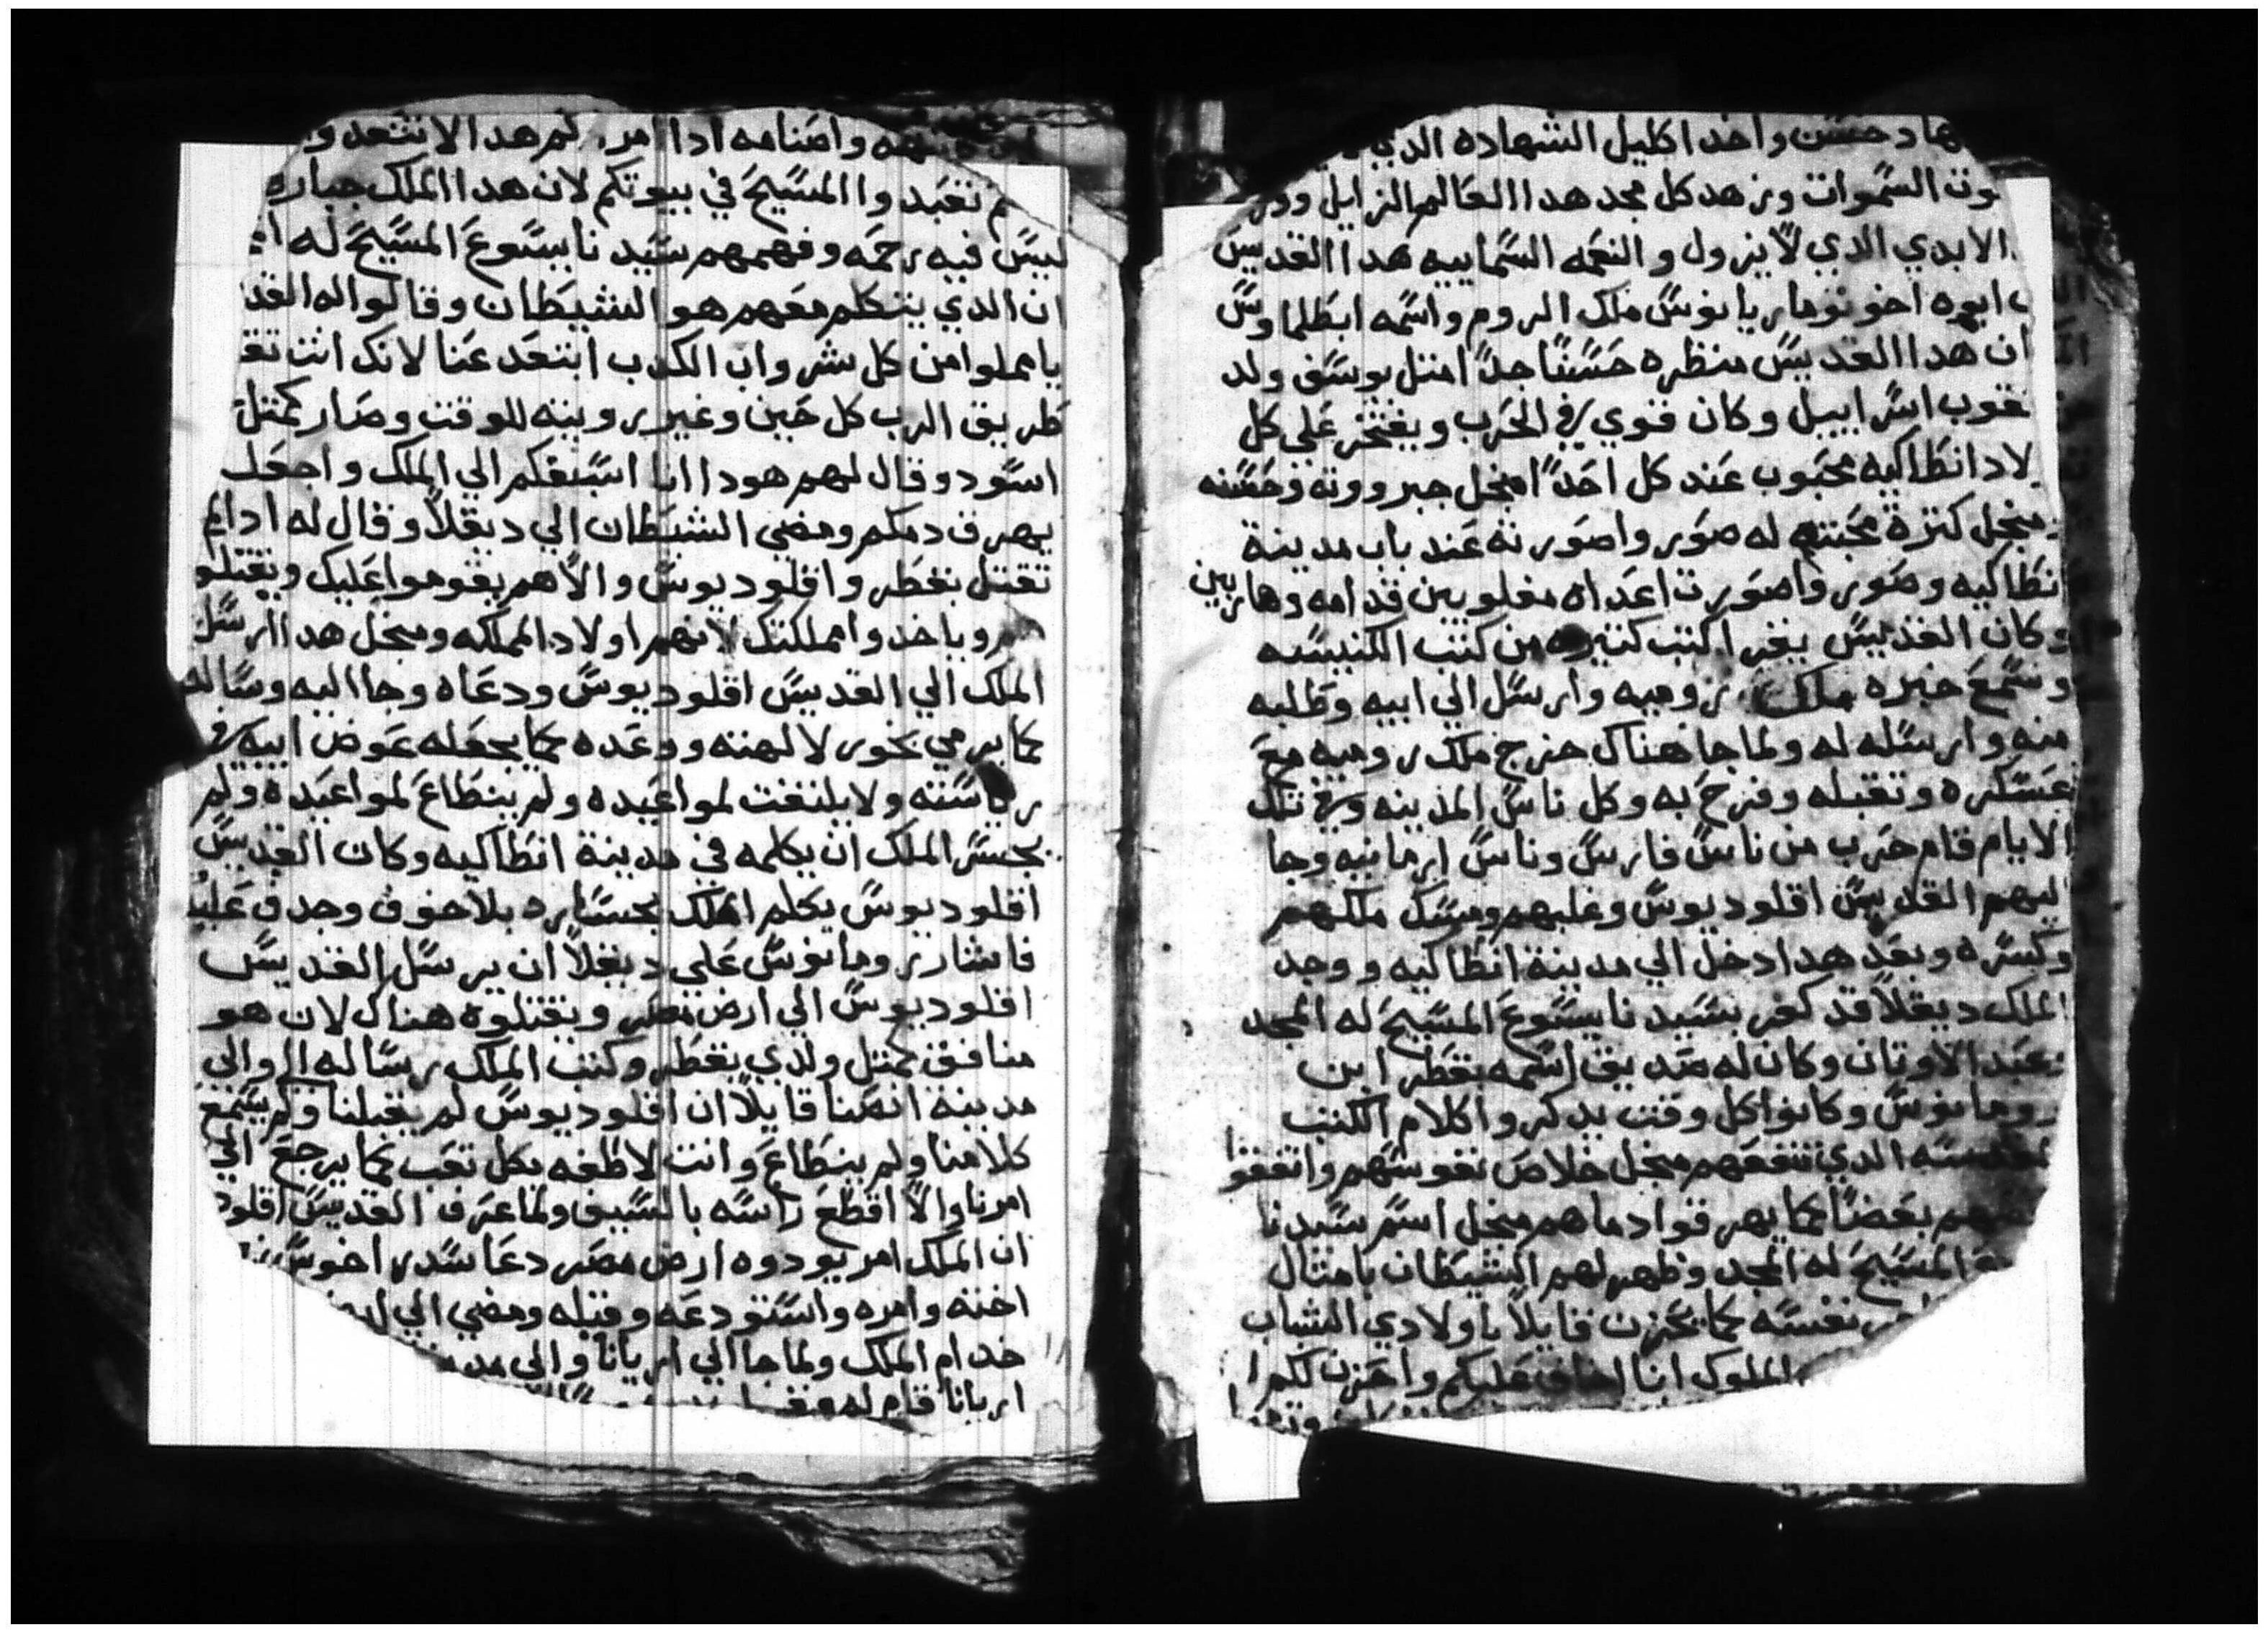 جهاد حسن واخد اكليل الشهاده الدي
السموات وزهد كل مجد هدا العالم الزايل وورث
الابدي الدي لا يزول والنعمه السماييه هدا القديس
ابوه اخو نوماريانوس ملك الروم واسمه ابطلماوس
ان هدا القديس منظره حسنًا جدًا امتل يوسف ولد
يعقوب اسراييل وكان قوي في الحرب ويفتخر على كل
اولاد انطاكيه محبوب عند كل احدًا منجل جبرووته وحسنه
منجل كترة محبتهم له صور واصورته عند باب مدينة
انطاكيه وصور واصورت اعداه مغلوبين قدامه وهاربين
وكان القديس يقرا كتب كتيره من كتب الكنيسه
وسمع خبره ملك روميه وارسل الي ابيه وطلبه
منه وارسله له ولما جا هناك خرج ملك روميه مع
عسكره وتقبله وفرح به وكل ناس المدينه وفي تلك
الايام قام حرب من ناس فارس وناس ارمانيه وجا
اليهم القديس اقلوديوس وغلبهم ومسك ملكهم
وكسره وبعد هدا دخل الي مدينة انطاكيه ووجد
الملك ديقلا قد كفر بسيدنا يسوع المسيح له المجد
وعبد الاوتان وكان له صديق اسمه بقطر ابن
رومانوس وكانوا كل وقت يدكروا كلام الكتب
المقدسه الدي تنفعهم منجل خلاص نفوسهم واتفقوا
بعضهم بعضًا كما يهرقوا دماهم منجل اسم سيدنا
المسيح له المجد وظهر لهم الشيطان بامتال
نفسه كما يحزن قايلا يا اولادي الشباب
الملوك انا اخاف عليكم واحزن لكم
واصنامه ادا امر لم هدا الا
نعبدوا المسيح في بيوتكم لان هدا الملك جباره
ليس فيه رحمه وفهمهم سيدنا يسوع المسيح له
ان الدي يتكلم معهم هو الشيطان وقالوا له
يا مملوا من كل شر واب الكدب ابتعد عنا لانك انت
طريق الرب كل حين وغير رويته للوقت وصار كمتل
اسود وقال لهم هودا انا اسبقكم الي الملك واجعل
يهرق دمكم ومضي الشيطان الي ديقلا وقال له ادا لم
تقتل بقطر واقلوديوس والا هم يقوموا عليك ويقتلو
وياخدوا مملكتك لانهم اولاد المملكه ومنجل هدا ارسل
الملك الي القديس اقلوديوس ودعاه وجا اليه وساله
كما يرمي بخور لالهته ووعده كما يجعله عوض ابيه في
رياسته ولا يلتفت لمواعيده ولم ينطاع لمواعيده ولم
يجسر الملك ان يكلمه في مدينة انطاكيه وكان القديس
اقلوديوس يكلم الملك بجساره بلا خوف وجدف عليه
فاشار رومانوس علي ديقلا ان يرسل القديس
اقلوديوس الي ارض مصر ويقتلوه هناك لان هو
منافق كمتل ولدي بقطر وكتب الملك رساله الي والي
مدينة انصنا قايلا ان اقلوديوس لم يقبلنا ولم يسمع
كلامنا ولم ينطاع وانت لاطفه بكل تعب كما يرجع الي
امرنا والا اقطع راسه بالسيف ولما عرف القديس
ان الملك امر يودوه ارض مصر دعا سدراخوس
اخته وامره واستودعه وقبله ومضي الي
خدام الملك ولما جا الي اريانا والي
اريانا قام له